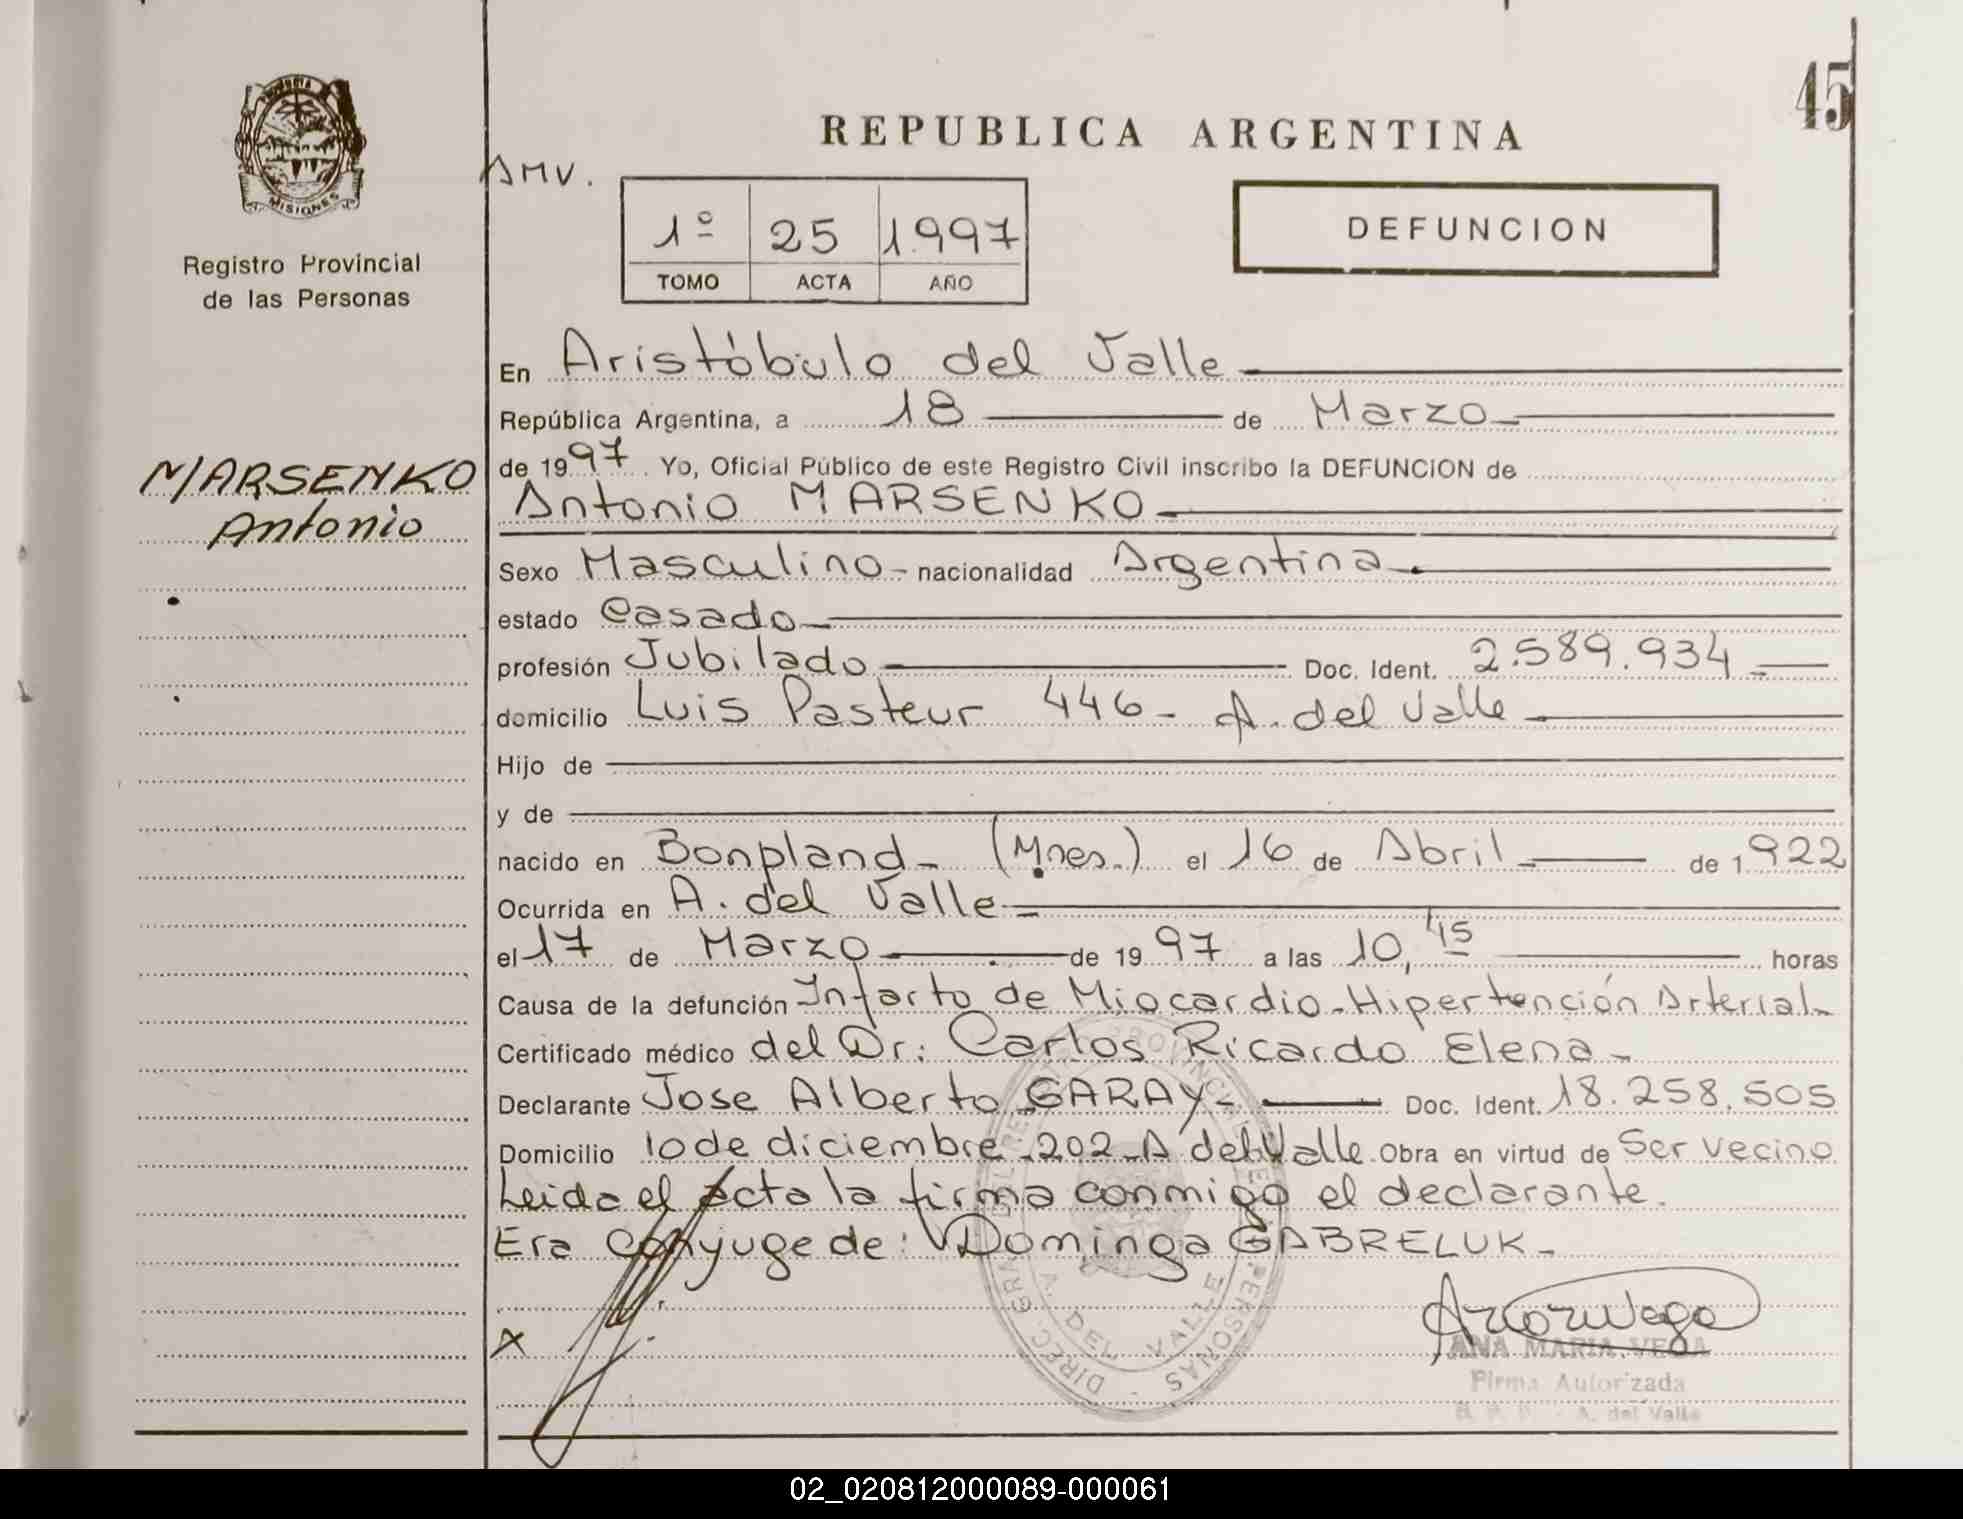 45
REPUBLICA ARGENTINA
AMV.
1º 25 1.997
TOMO ACTA AÑO
DEFUNCION
MISIONES
Registro Provincial
de las Personas
MARSENKO
Antonio
En Aristóbulo del Valle
República Argentina, a 18 de Marzo
de 1997 Yo, Oficial Público de este Registro Civil inscribo la DEFUNCION de
Antonio MARSENKO
Sexo Masculino nacionalidad Argentina
estado Casado
profesión Jubilado Doc. Ident. 2.589.934
domicilio Luis Pasteur 446 - A. del Valle
Hijo de
y de
nacido en Bonpland - (Mnes.) el 16 de Abril de 1.922
Ocurrida en A. del Valle
el 17 de Marzo de 1997 a las 10,45 horas
Causa de la defunción Infarto de Miocardio - Hipertención Arterial-
Certificado médico del Dr: Carlos Ricardo Elena-
Declarante Jose Alberto GARAY- Doc. Ident. 18.258.505
Domicilio 10 de diciembre 202 - A del Valle Obra en virtud de Ser vecino
Leida el acta la firma conmigo el declarante.
Era Conyuge de: Dominga GABRELUK-
X
A. DEL VALLE
ANA MARIA VEGA
Firma Autorizada
A. del Valle
02_020812000089-000061